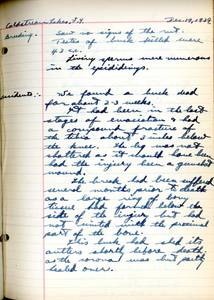 Coldstream Lakes, N.Y. Dec. 19, 1938
Breeding. Saw no signs of the rut.
Testes of buck killed were
43 cc.
Living sperms were numerous
in the epididimys.
Accidents:- We found a buck dead
for about 2-3 weeks.
It had been in the last
stages of emaciation & had
a compound fracture of
the tibia about 3" below
the knee. The leg was not
shattered as it should have been
had the injury been a gunshot
wound.
The break had been suffered
several months prior to death
as a large ring of bony
tissue had formed below the
side of the injury but had
not united with the proximal
part of the bone.
This buck had shed its
antlers shortly before death
as the corona was but partly
healed over.